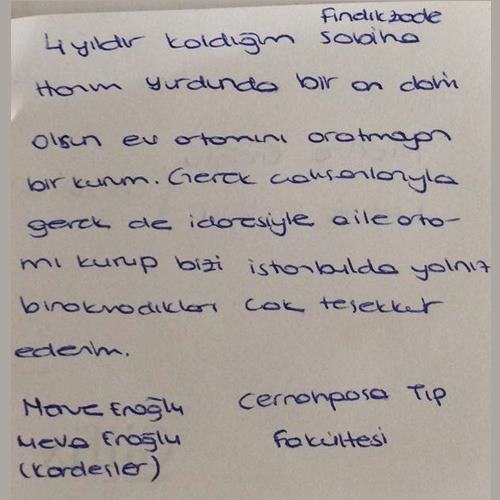 Fındıkzade
4 yıldır kaldığım Sabiha
Hanım yurdunda bir an dahi
olsun ev ortamını aratmayan
bir kurum. Gerek çalışanlarıyla
gerek de idaresiyle aile orta-
mı kurup bizi istanbulda yalnız
bırakmadıkları çok teşekkür
ederim.
Merve Eroğlu Cerrahpaşa Tıp
Meva Eroğlu Fakültesi
(Kardeşler)